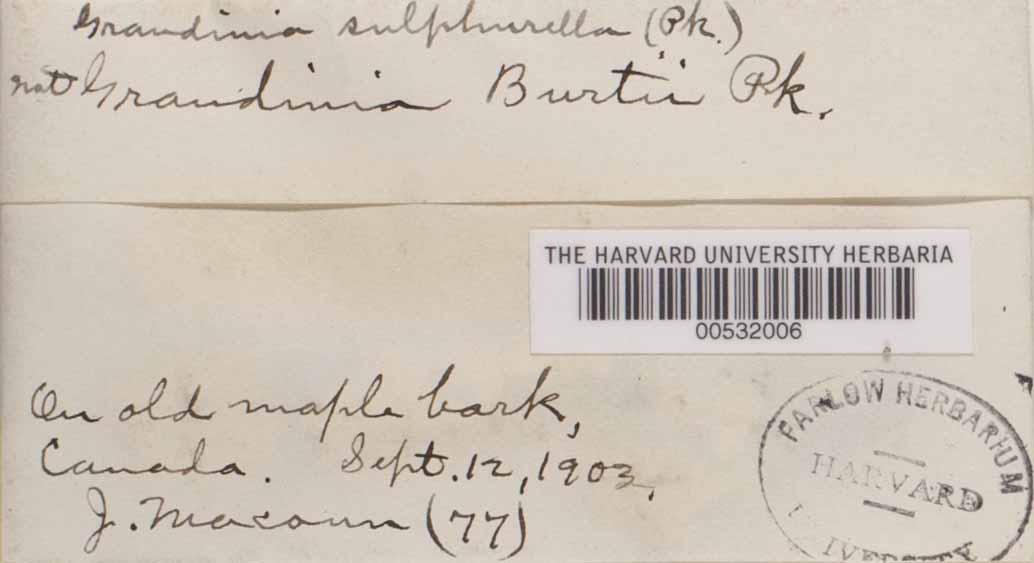 Grandinia sulphurella (Pk.)
not Grandinia Burtii Pk.
THE HARVARD UNIVERSITY HERBARIA
00532006
On old maple bark,
Canada. Sept. 12, 1903,
J. Macoun (77)
FARLOW HERBARIUM
HARVARD
IVERSITY